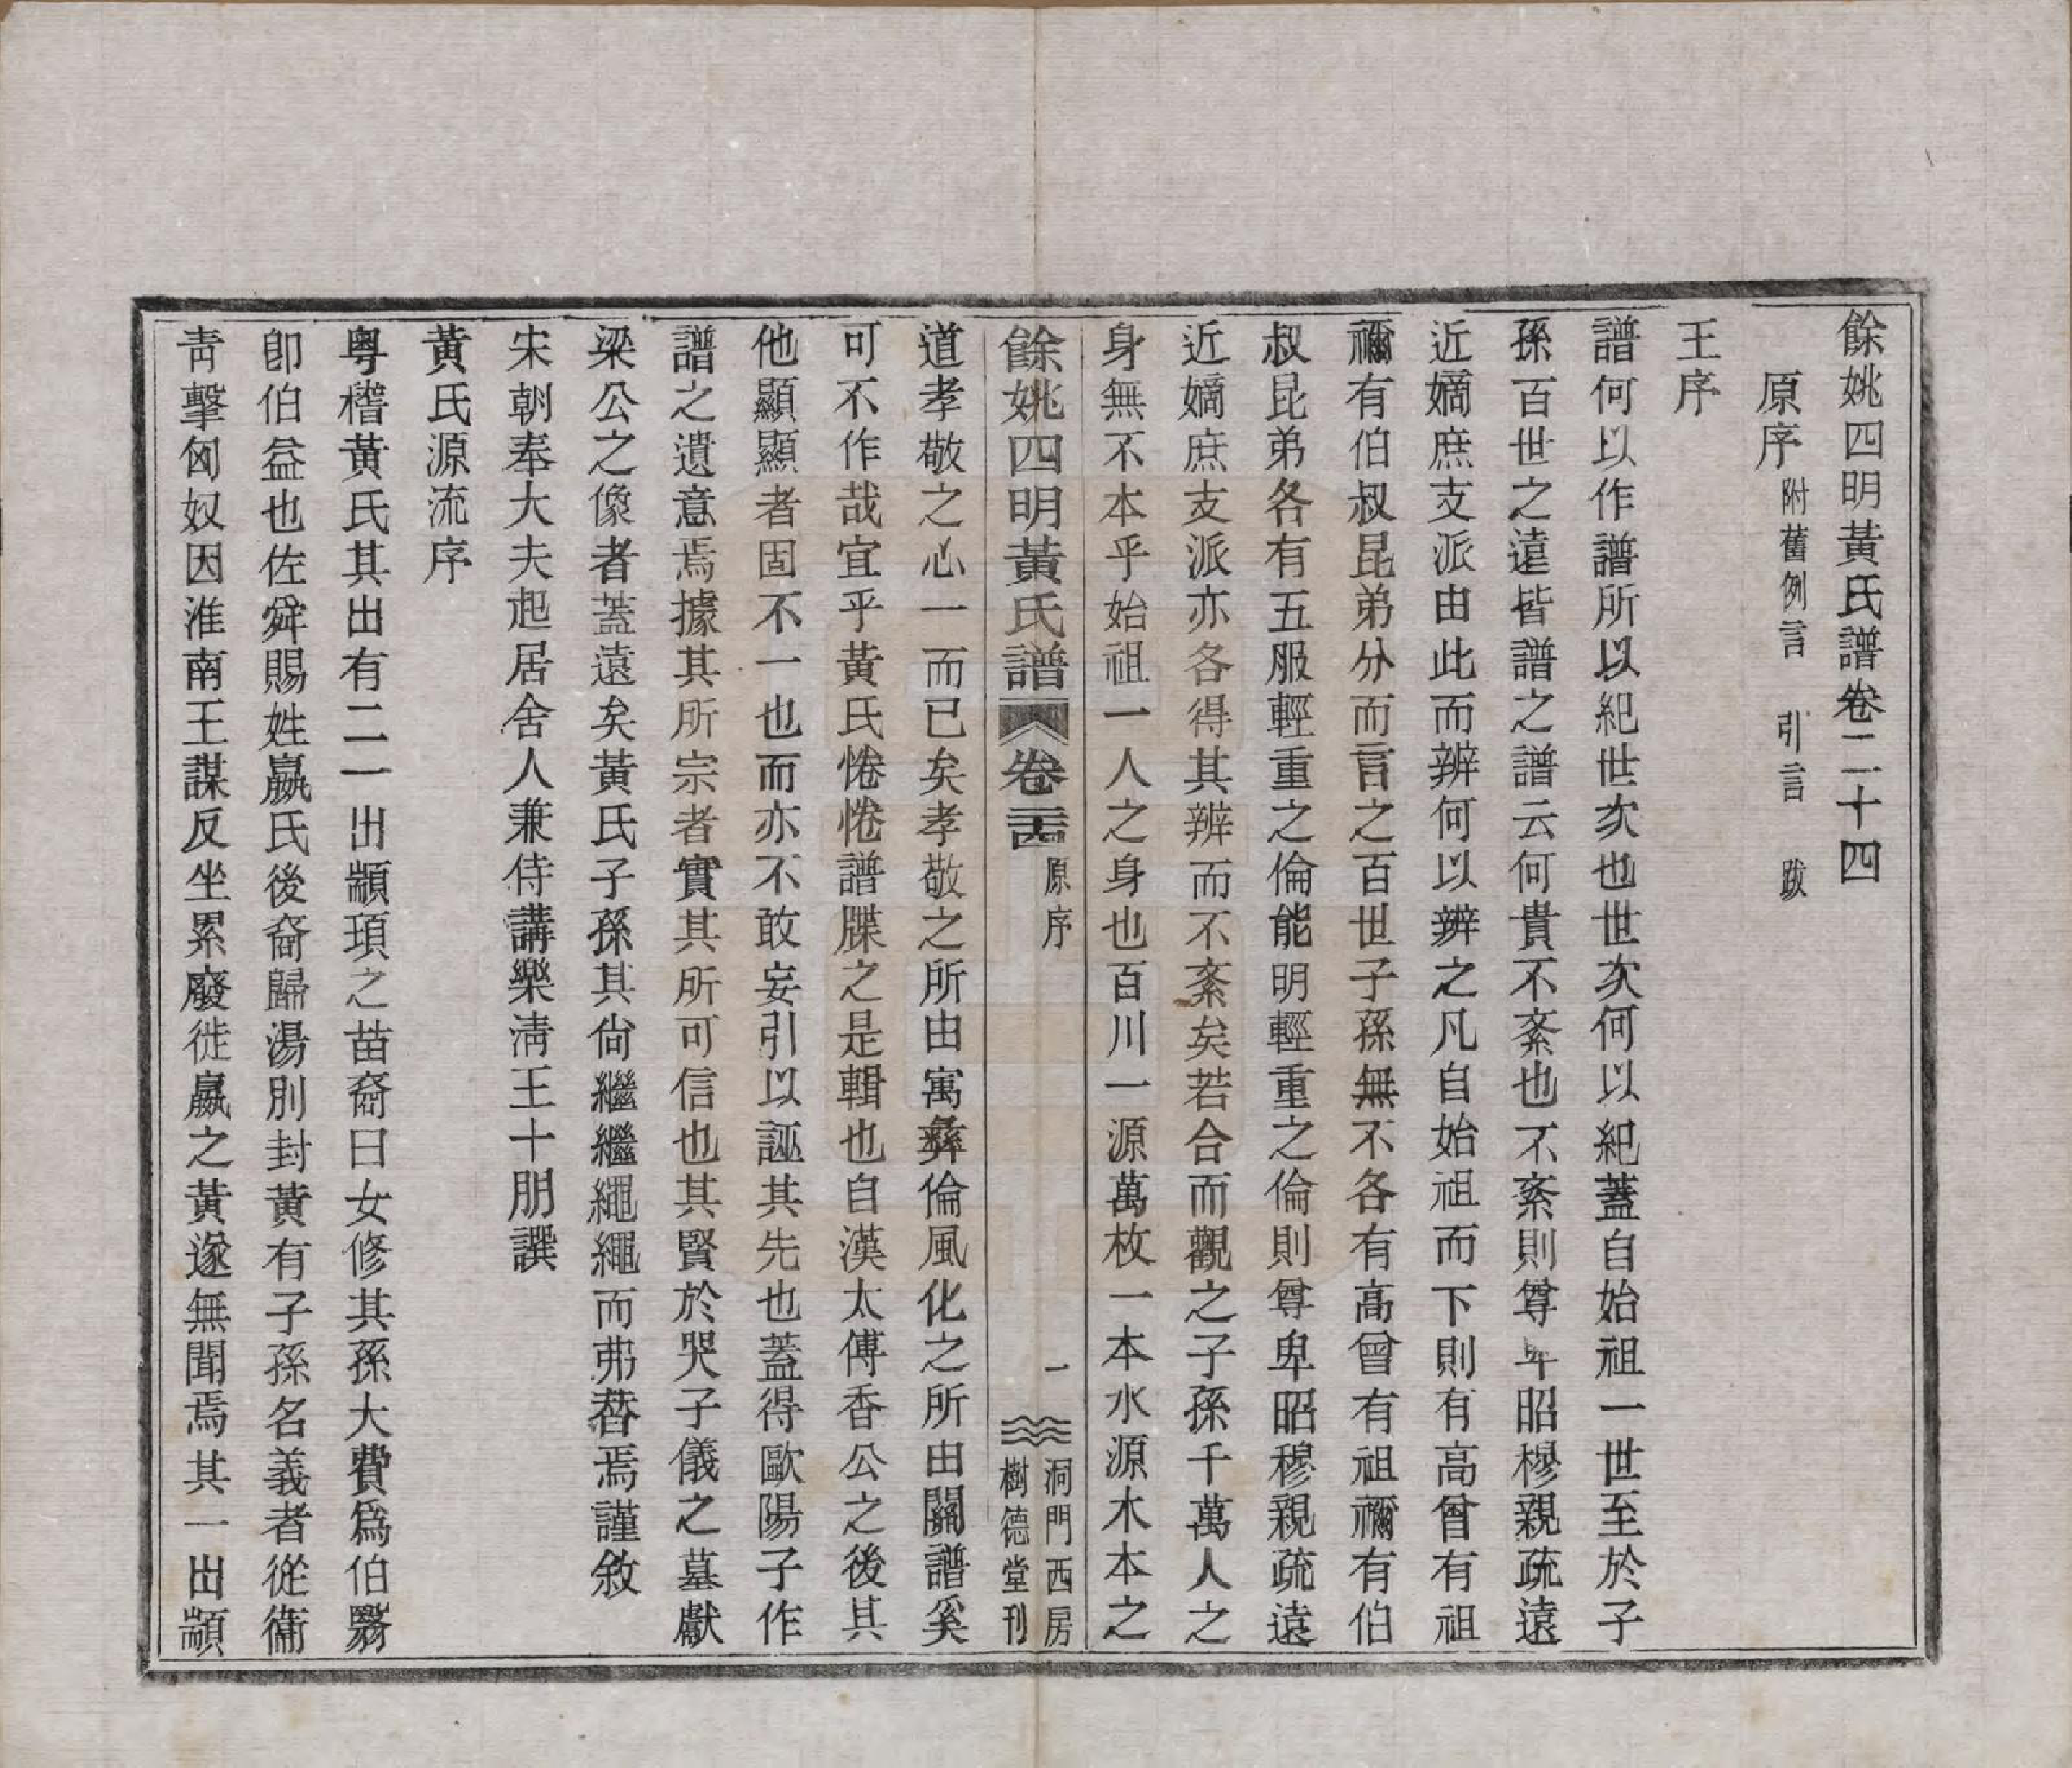 餘姚四明黃氏譜卷二十四
原序 附舊例言 引言 跋
王序
譜何以作譜所以紀世次也世次何以紀蓋自始祖一世至於子
孫百世之遠皆譜之譜云何貴不紊也不紊則尊卑昭穆親疏遠
近嫡庶支派由此而辨何以辨之凡自始祖而下則有高曾有祖
禰有伯叔昆弟分而言之百世子孫無不各有高曾有祖禰有伯
叔昆弟各有五服輕重之倫能明輕重之倫則尊卑昭穆親疏遠
近嫡庶支派亦各得其辨而不紊矣若合而觀之子孫千萬人之
身無不本乎始祖一人之身也百川一源萬枚一本水源木本之
餘姚四明黃氏譜 卷二十四 原序 一 洞門西房 樹德堂刊
道孝敬之心一而已矣孝敬之所由寓彝倫風化之所由關譜奚
可不作哉宜乎黃氏惓惓譜牒之是輯也自漢太傅香公之後其
他顯顯者固不一也而亦不敢妄引以誣其先也蓋得歐陽子作
譜之遺意焉據其所宗者實其所可信也其賢於哭子儀之墓獻
梁公之像者蓋遠矣黃氏子孫其尙繼繼繩繩而弗替焉謹敘
宋朝奉大夫起居舍人兼侍講樂淸王十朋譔
黃氏源流序
粵稽黃氏其出有二一出顓頊之苗裔曰女修其孫大費爲伯翳
卽伯益也佐舜賜姓嬴氏後裔歸湯別封黃有子孫名義者從衞
靑擊匈奴因淮南王謀反坐累廢徙嬴之黃遂無聞焉其一出顓